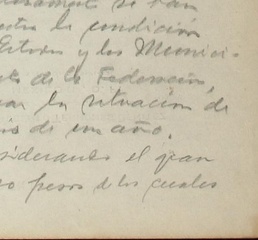 se han
la condición
y los Munici-
de la Federación,
la situación de
de un año.
siderando el gran
pesos de los cuales